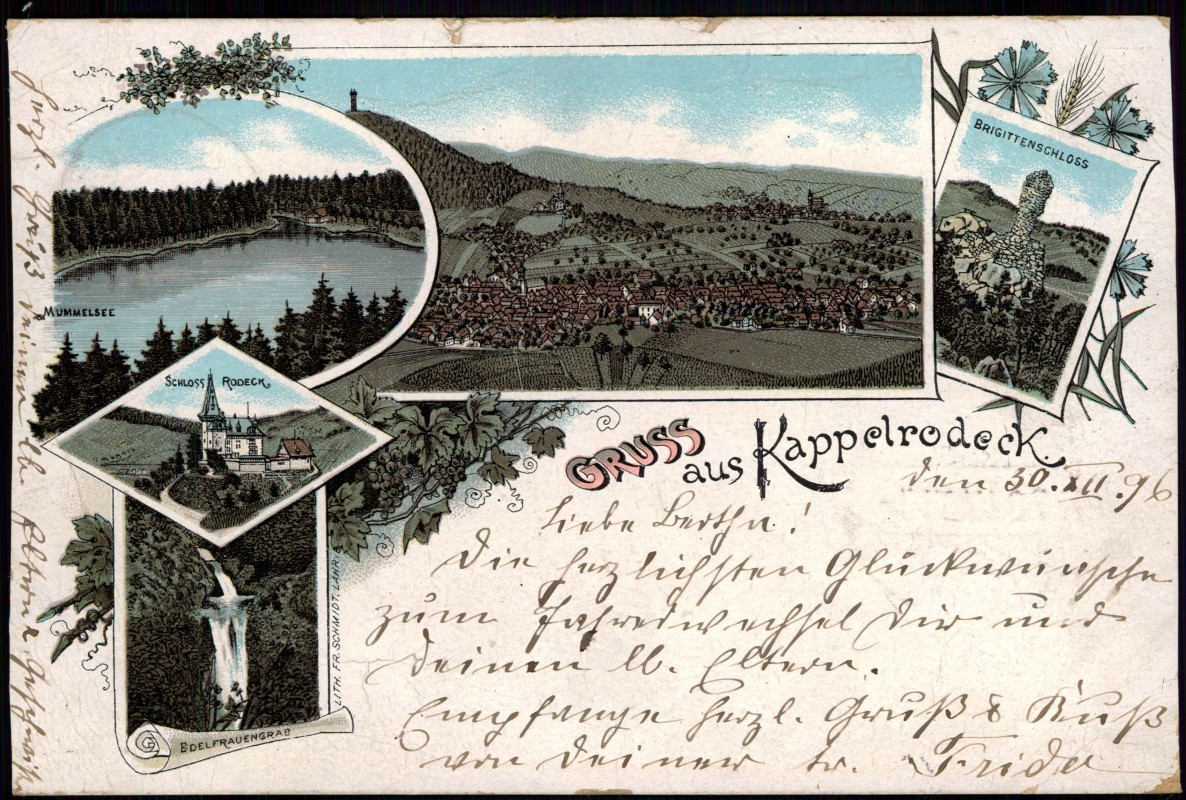 MUMMELSEE
BRIGITTENSCHLOSS
SCHLOSS RODECK
EDELFRAUENGRAB
LITH. FR. SCHMIDT, LAHR.
GRUSS aus Kappelrodeck
den 30. XII. 96
Liebe Bertha!
Die herzlichsten Glückwünsche
zum Jahreswechsel Dir und
Deinen lb. Eltern.
Empfange herzl. Gruß & Kuß
von Deiner tr. Frida
Herzl. Grüße meiner lb. Eltern & Geschwister